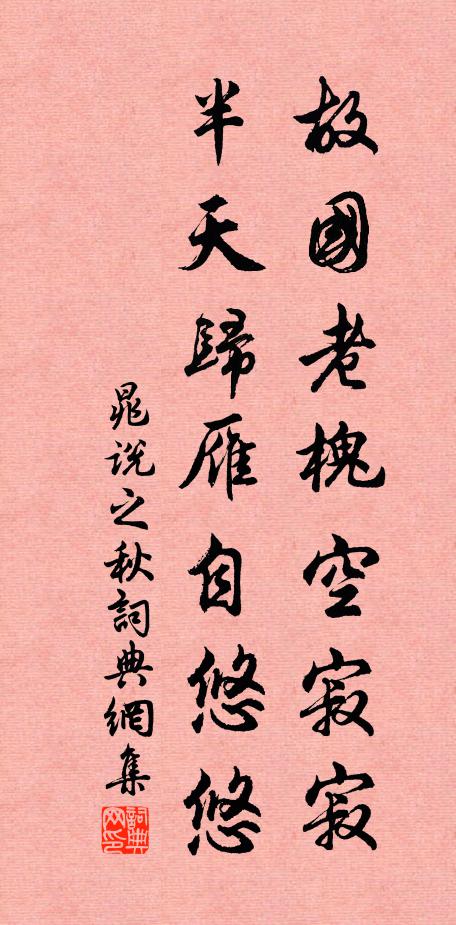 故國老槐空寂寂
半天歸雁自悠悠
晁說之秋詞典網集
詞典
网印